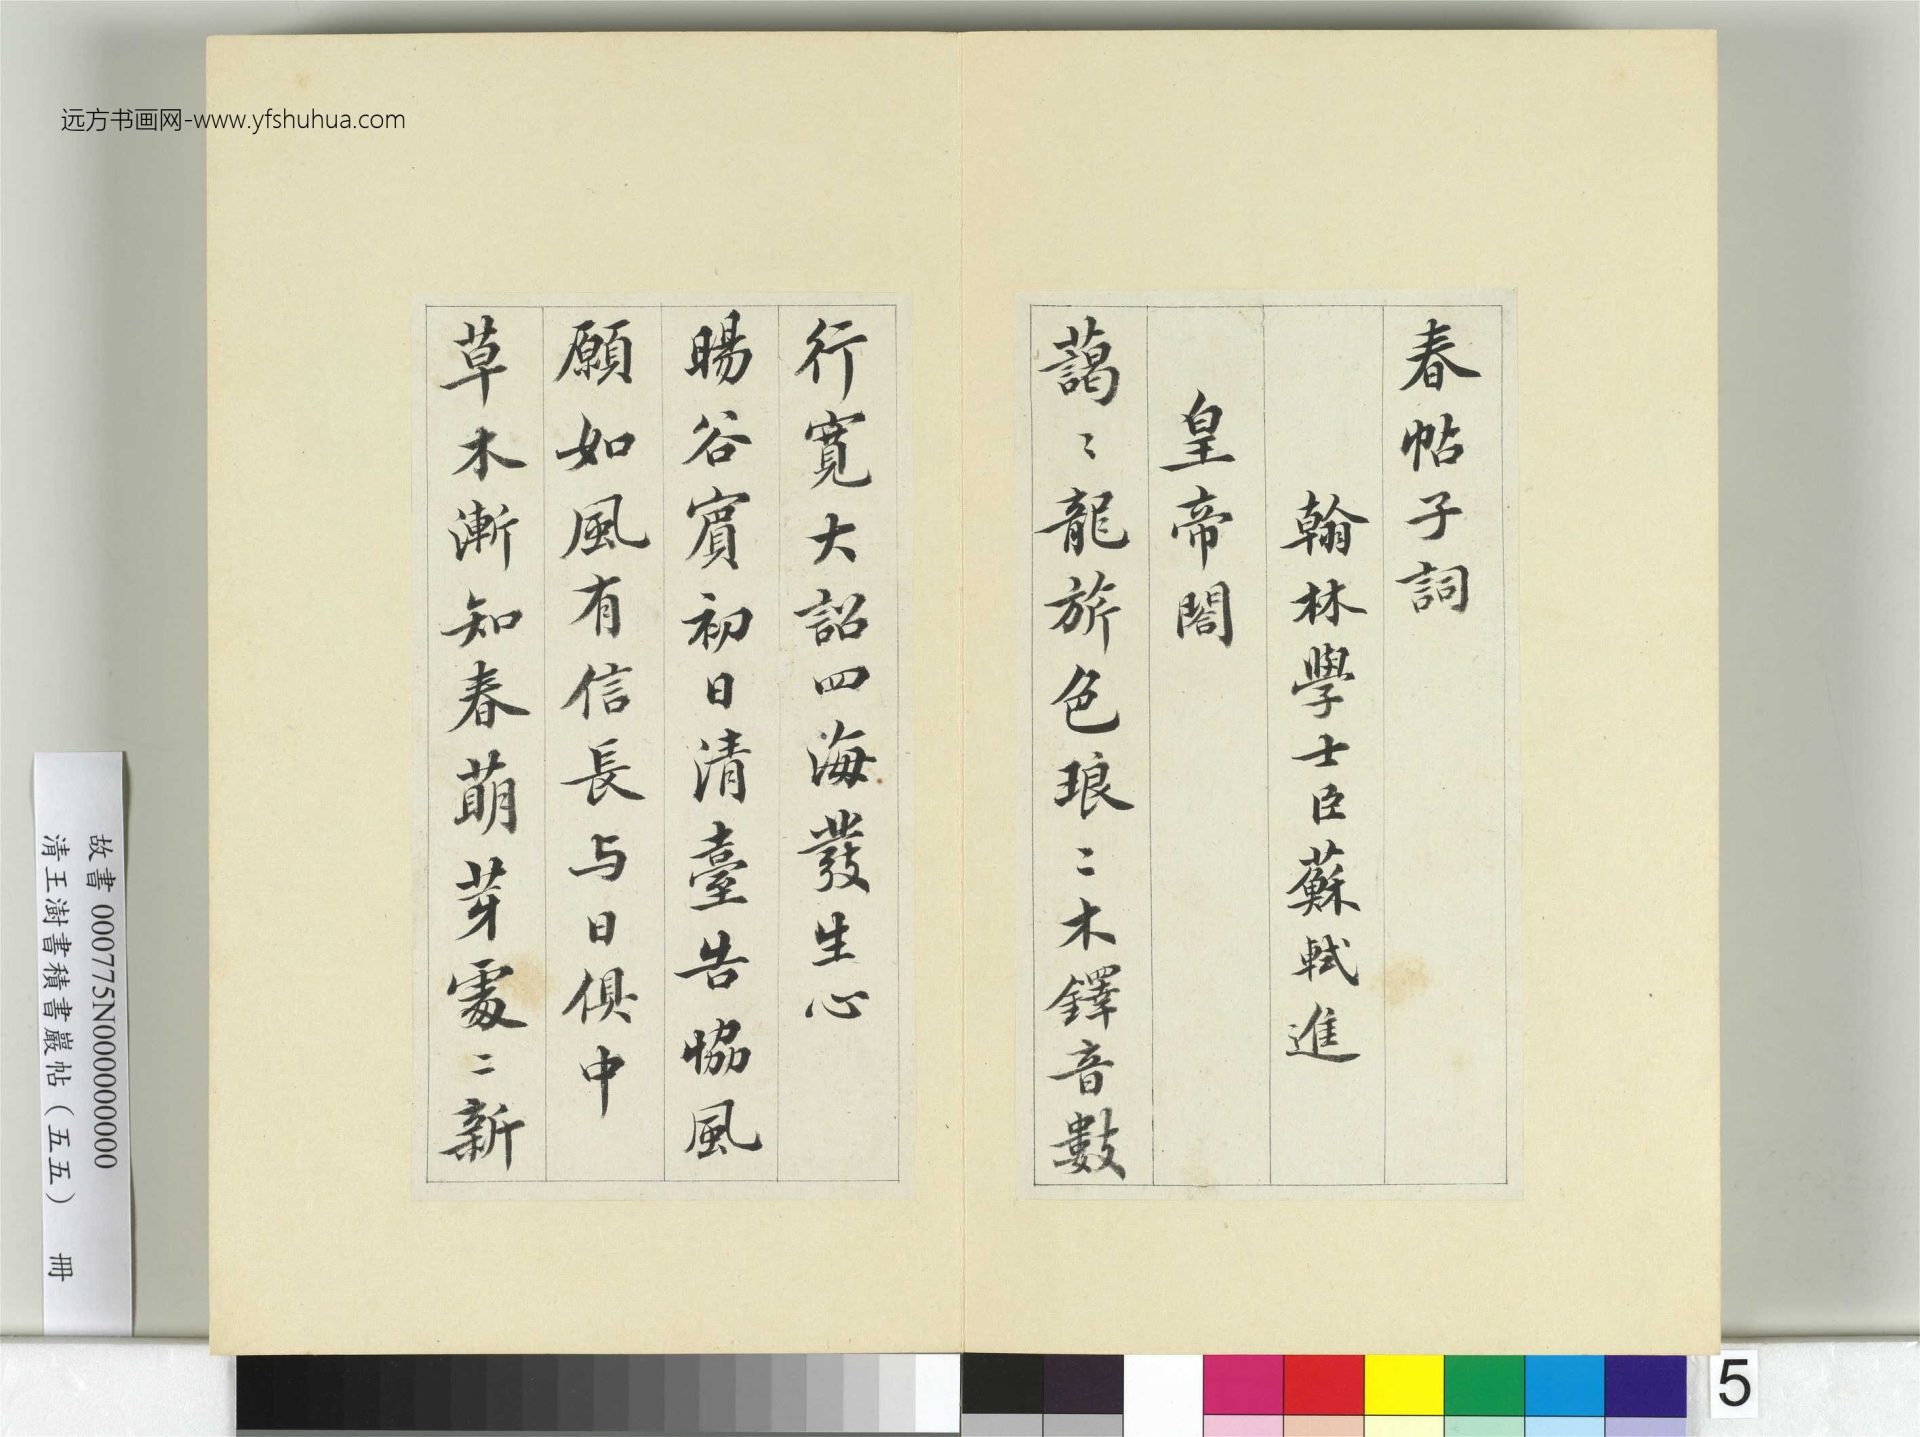 远方书画网-www.yfshuhua.com
春帖子詞
翰林學士臣蘇軾進
皇帝閣
藹〻龍旂色琅〻木鐸音數
行寬大詔四海發生心
暘谷賔初日清臺告協風
願如風有信長与日俱中
草木漸知春萌芽處〻新
故書 000775N000000000
清王澍書積書巖帖（五五） 冊
5